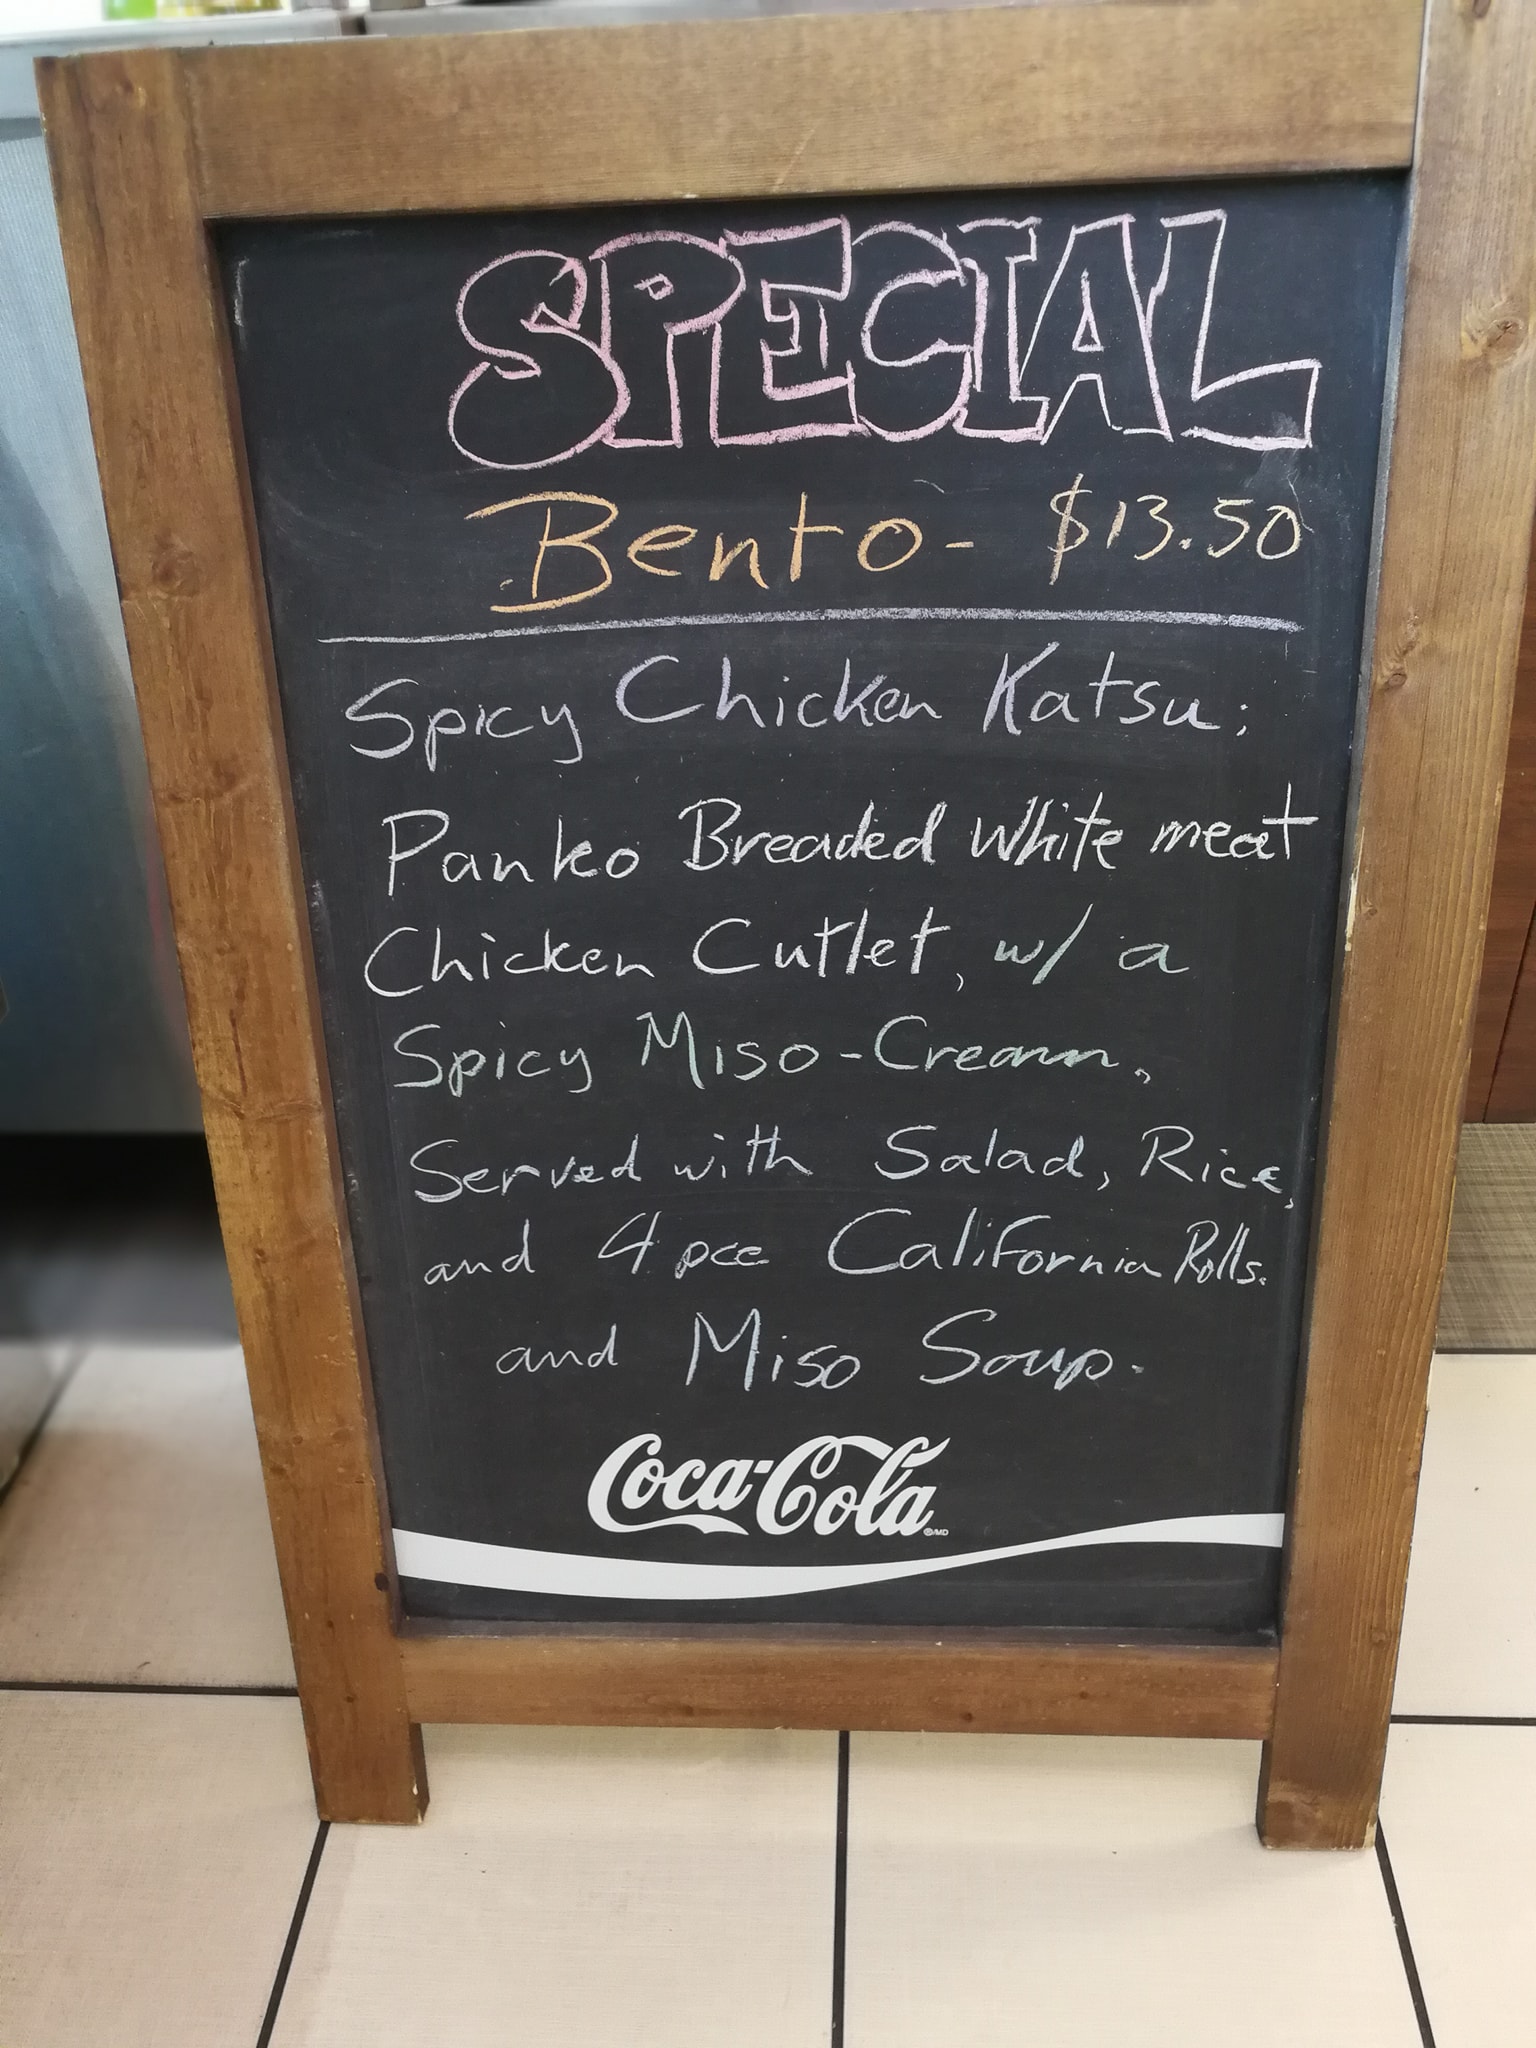 SPECIAL
Bento - $13.50
Spicy Chicken Katsu;
Panko Breaded White meat
Chicken Cutlet, w/ a
Spicy Miso-Cream,
Served with Salad, Rice,
and 4 pce California Rolls.
and Miso Soup.
Coca-Cola
®/MD